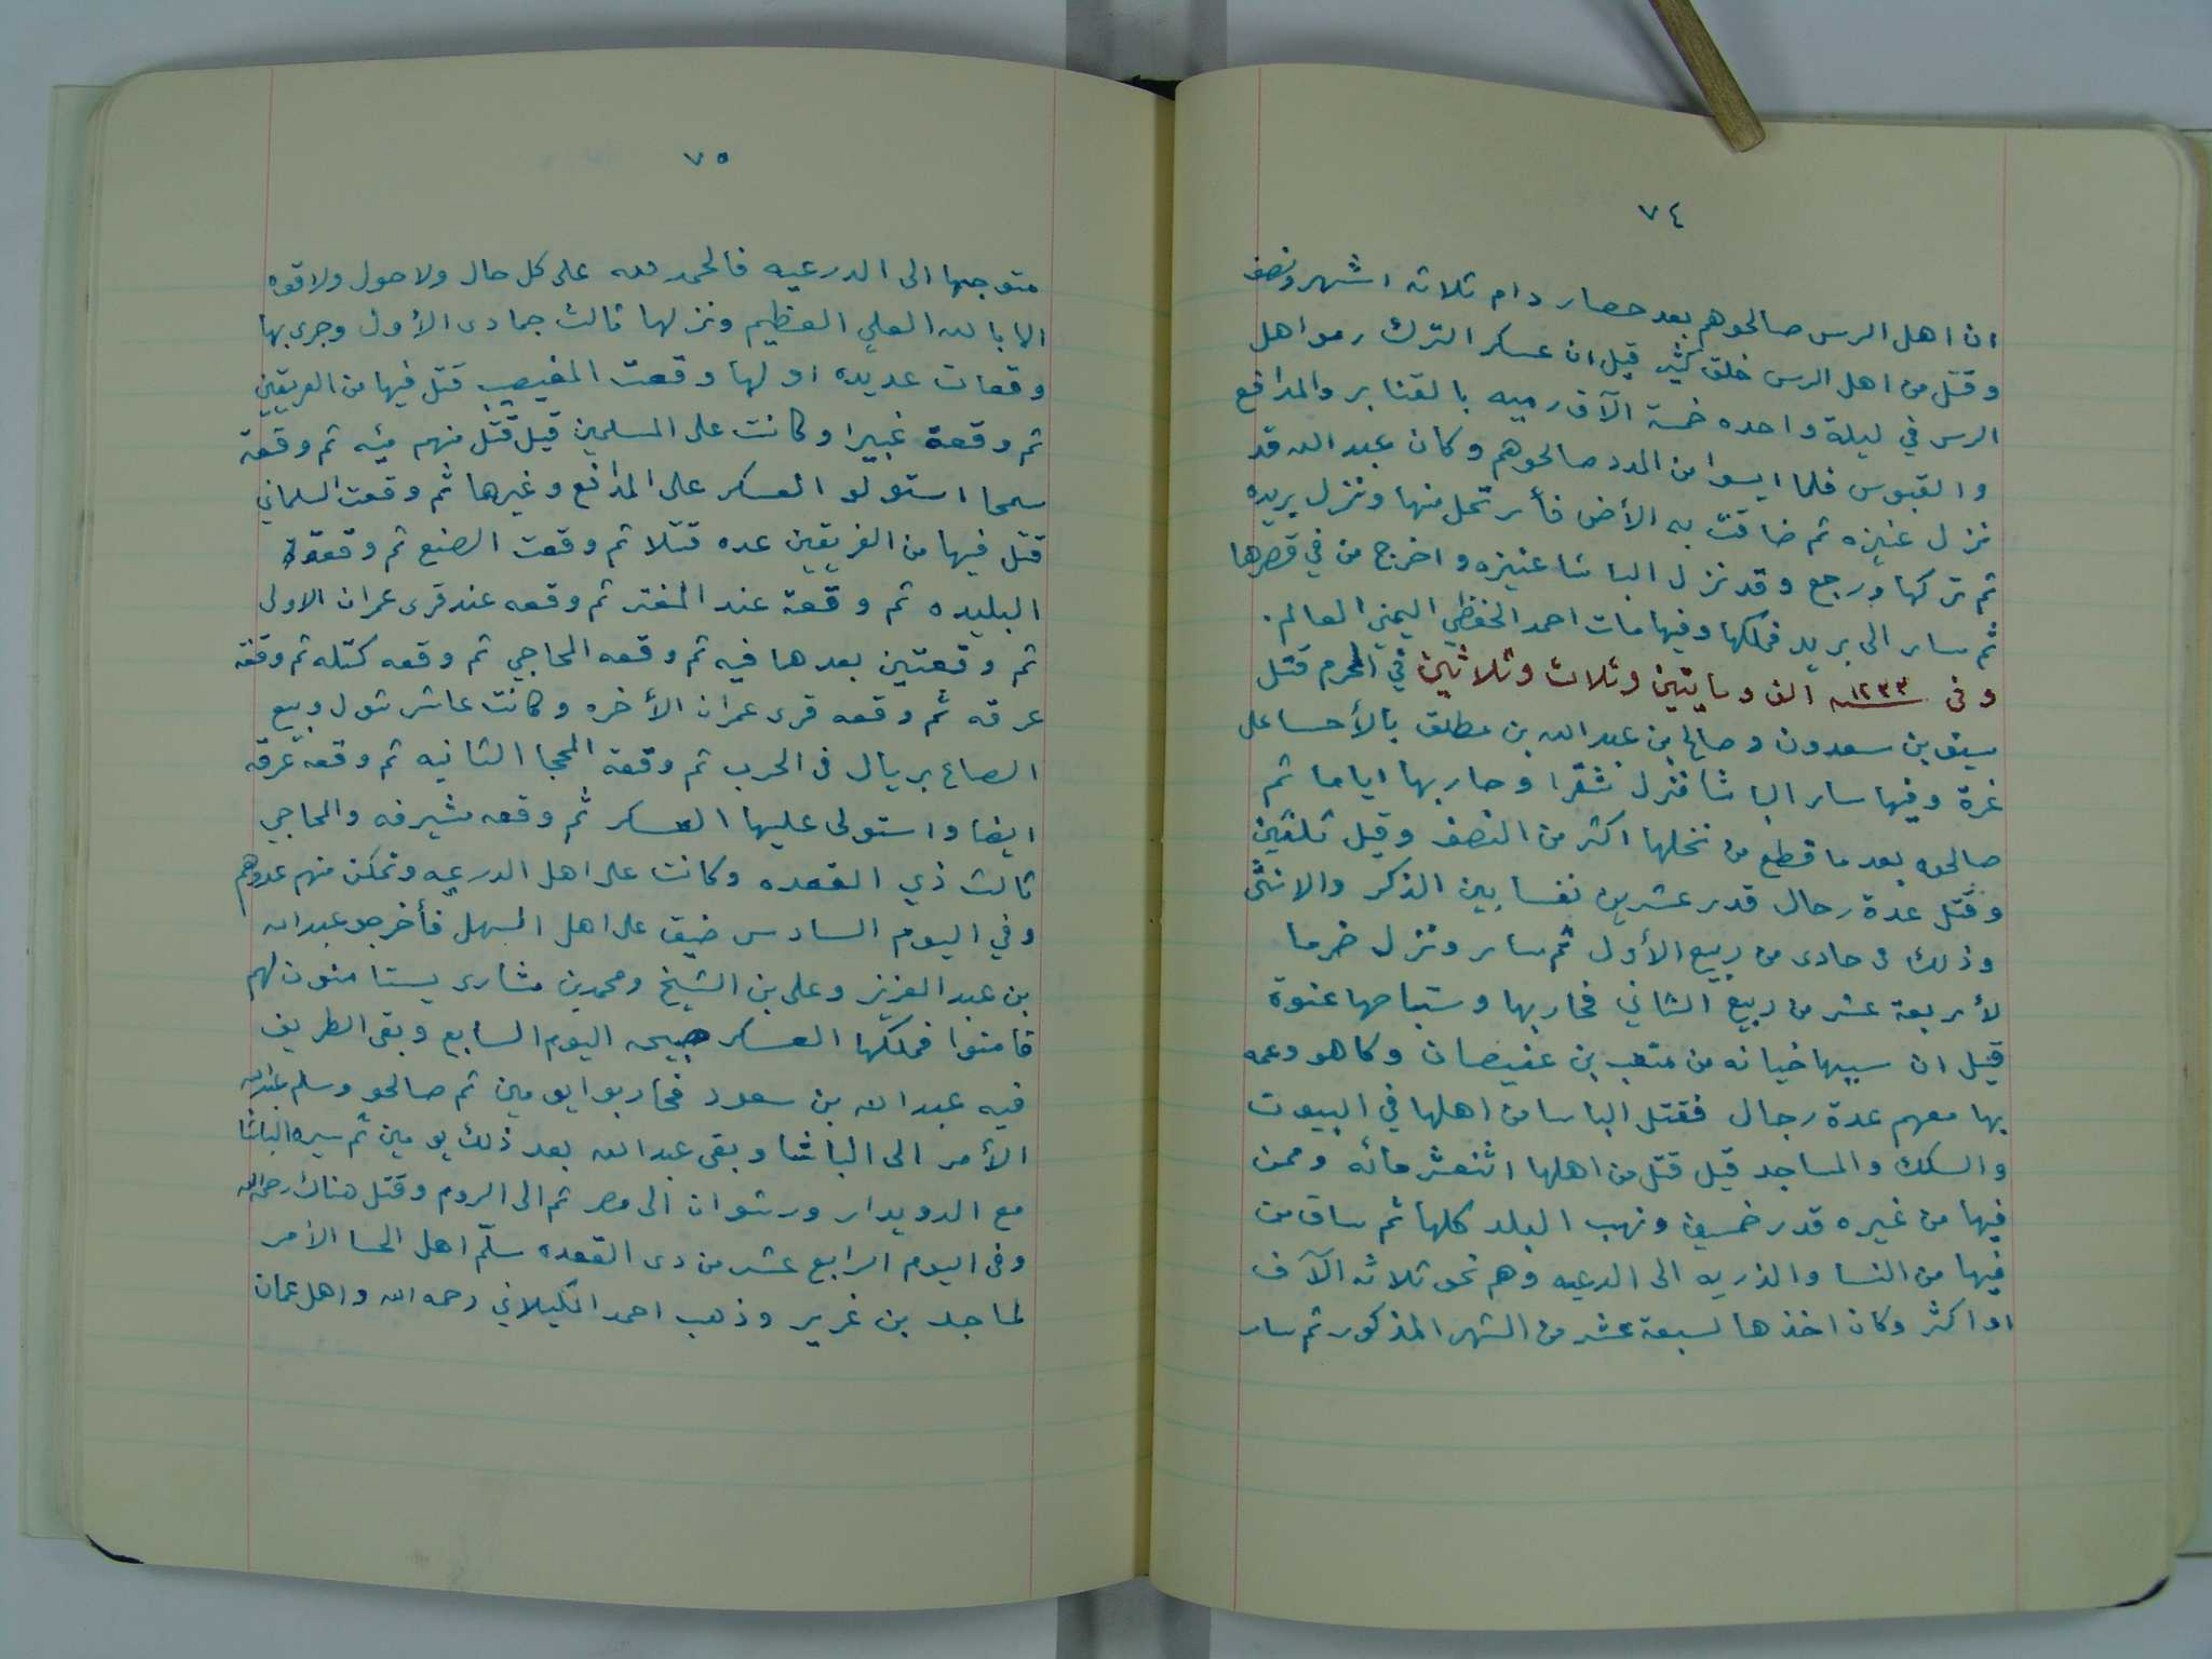 ٧٤
ان اهل الرس صالحوهم بعد حصار دام ثلاثه اشهر ونصف
وقتل من اهل الرس خلق كثير قيل ان عسكر الترك رموا اهل
الرس في ليلة واحده خمسة الآف رميه بالقنابر والمدافع
والقبوس فلما ايسوا من المدد صالحوهم وكان عبد الله قد
نزل عنيزه ثم ضاقت به الأرض فأرتحل منها ونزل بريده
ثم تركها ورجع وقد نزل الباشا عنيزه واخرج من في قصرها
ثم سار الى بريده فملكها وفيها مات احمد الحفظي اليمني العالم .
وفى ١٢٣٣ سنه الف ومايتين وثلاث وثلاثين في المحرم قتل
سيف بن سعدون وصالح بن عبد الله بن مطلق بالأحسا على
غرة وفيها سار الباشا فنزل شقرا وحاربها اياما ثم
صالحوه بعد ما قطع من نخلها اكثر من النصف وقيل ثلثين
وقتل عدة رجال قدر عشرين نفسا بين الذكر والانثى
وذلك فى حادى من ربيع الأول ثم سار ونزل ضرما
لأربعة عشر من ربيع الثاني فحاربها وستباحها عنوة
قيل ان سببها خيانه من متعب بن عفيصان وكا هو وعمه
بها معهم عدة رجال فقتل الباسا من اهلها في البيوت
والسكك والمساجد قيل قتل من اهلها اثنعشر مائه وممن
فيها من غيره قدر خمسين ونهب البلد كلها ثم ساق من
فيها من النسا والذريه الى الدرعيه وهم نحو ثلاثه الآف
او اكثر وكان اخذها لسبعة عشر من الشهر المذكور ثم سار
٧٥
متوجها الى الدرعيه فالحمد لله على كل حال ولا حول ولا قوه
الا بالله العلي العظيم ونزلها ثالث جمادى الأول وجرى بها
وقعات عديده اولها وقعت المغيصيب قتل فيها من الفريقين
ثم وقعة غبيرا وكانت على المسلمين قيل قتل منهم مئه ثم وقعة
سمحا استولو العسكر على المدافع وغيرها ثم وقعت السلماني
قتل فيها من الفريقين عده قتلا ثم وقعت الصنع ثم وقعة
البليده ثم وقعة عند المغتر ثم وقعه عند قرى عمران الاولى
ثم وقعتين بعدها فيه ثم وقعه المحاجي ثم وقعه كتله ثم وقعة
عرقه ثم وقعه قرى عمران الأخره وكانت عاشر شول وبيع
الصاع بريال فى الحرب ثم وقعة المحجا الثانيه ثم وقعة عرقه
ايضا واستولى عليها العسكر ثم وقعه مشيرفه والمحاجي
ثالث ذي القعده وكانت على اهل الدرعيه وتمكن منهم عدوهم
وفي اليوم السادس ضيق على اهل السهل فأخرجو عبد الله
بن عبد العزيز وعلى بن الشيخ ومحمد بن مشارى يستامنون لهم
فامنوا فملكها العسكر صبيحه اليوم السابع وبقى الطريف
فيه عبد الله بن سعود فحاربوا يومين ثم صالحو وسلم عبد الله
الأمر الى الباشا وبقى عبد الله بعد ذلك يومين ثم سيره الباشا
مع الدويدار ورشوان الى مصر ثم الى الروم وقتل هناك رحمه الله
وفى اليوم الرابع عشر من دى القعده سلّم اهل الحسا الأمر
لماجد بن غرير وذهب احمد الكيلاني رحمه الله واهل عمان